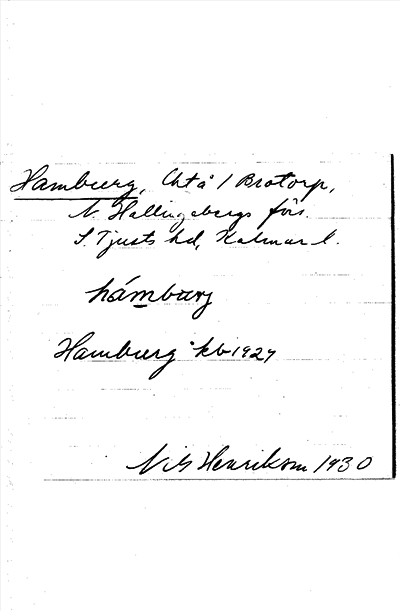 Hamburg, Urtå / Brotorp,
N. Hallingebergs förs.
S. Tjusts hd, Kalmar l.
hámbarj
Hamburg kb 1927
Nils Henrikson 1930